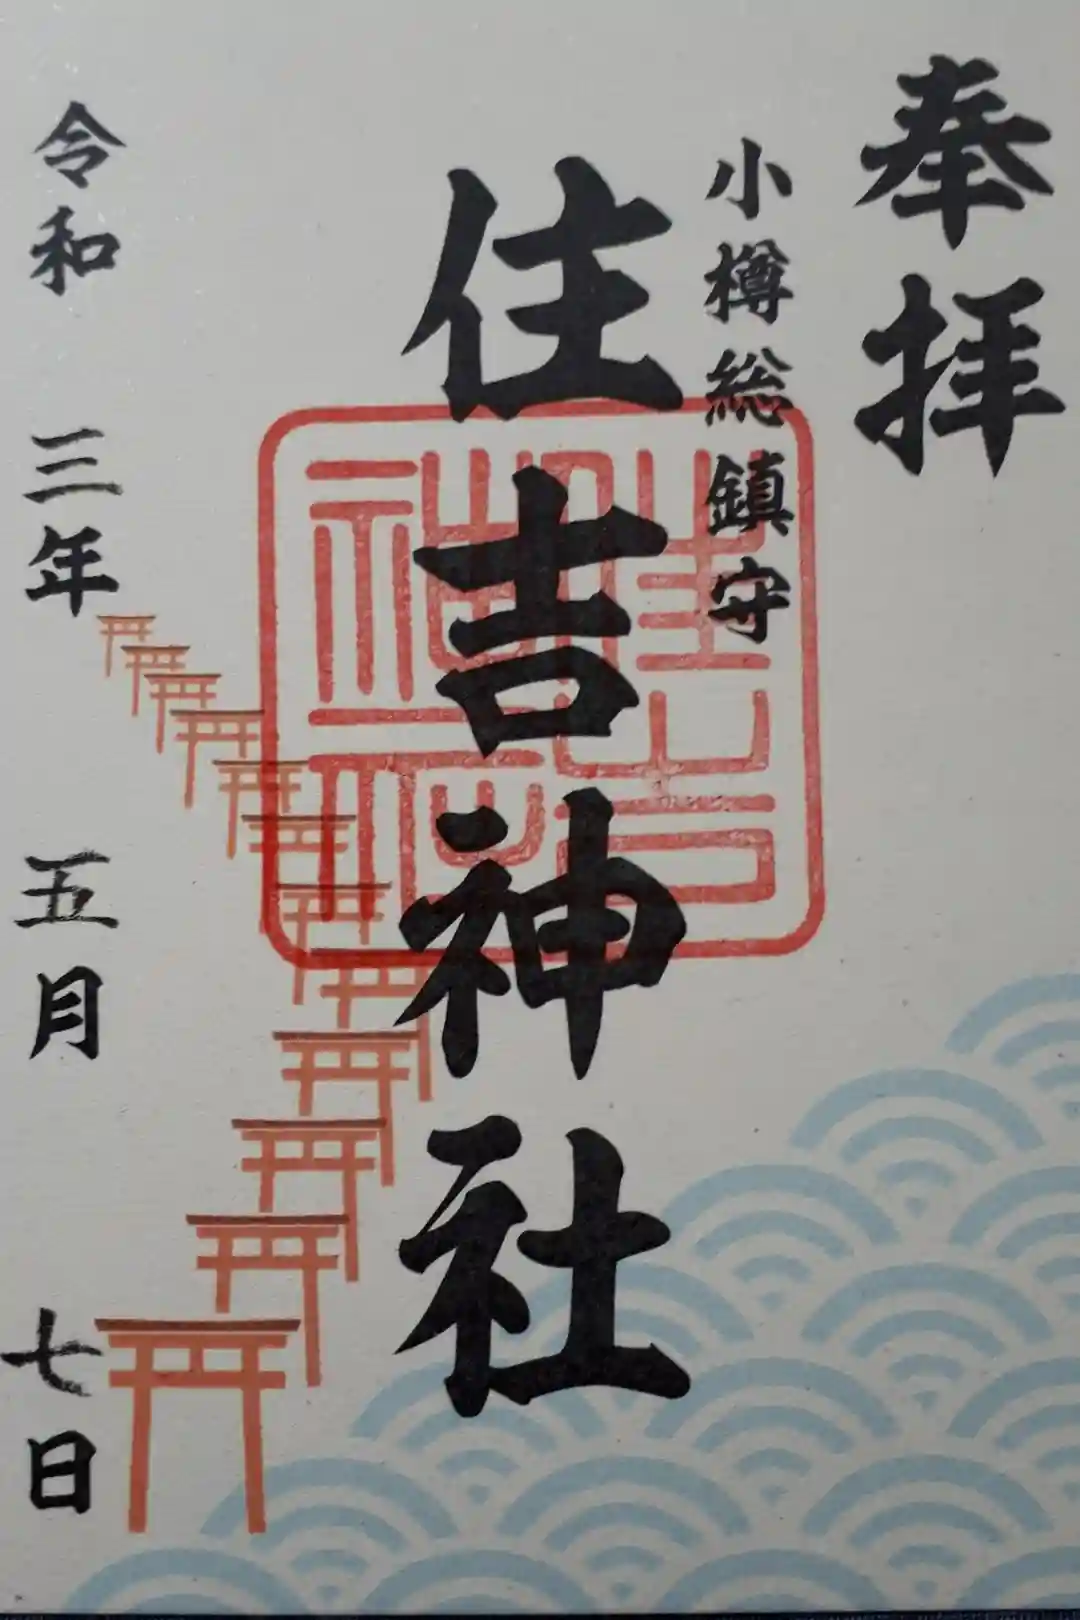 奉拝
小樽総鎮守
住吉神社
住吉神社印
令和三年五月七日